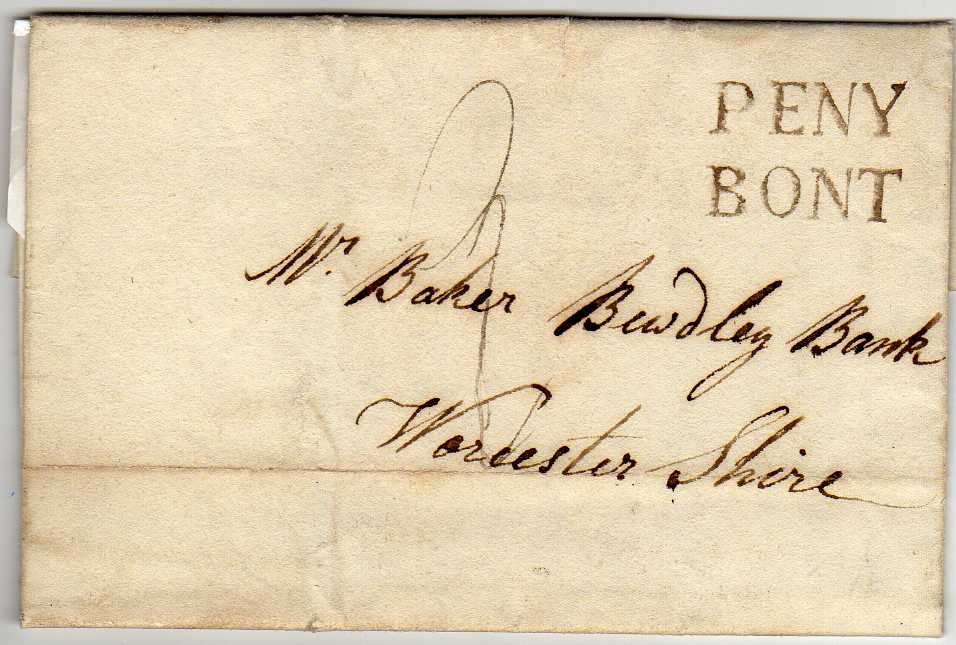 PENY
BONT
Mr. Baker Bewdley Bank
Worcester Shire